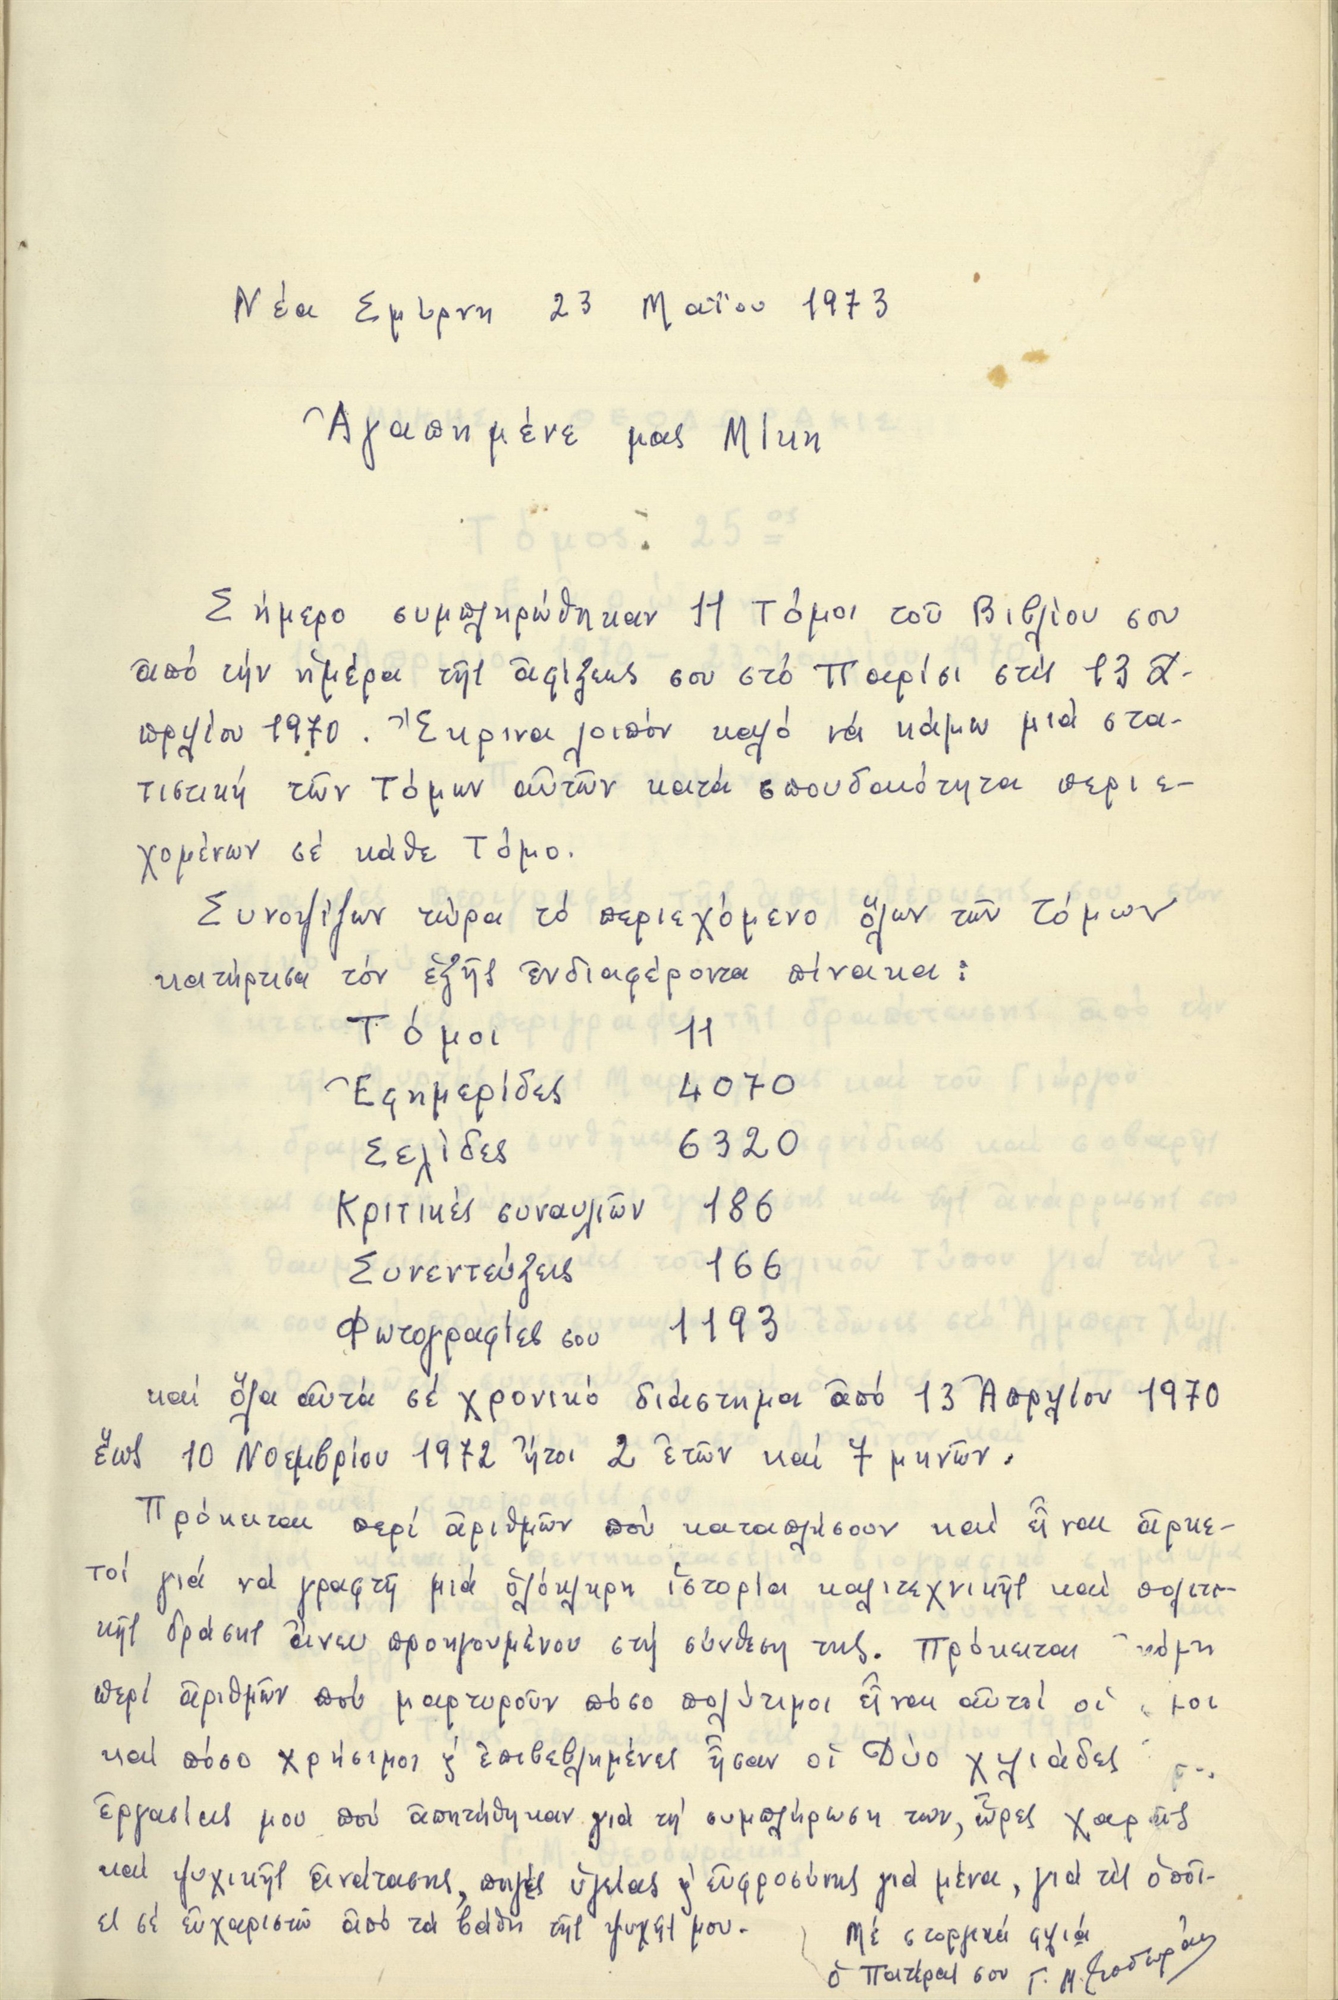 Νέα Σμύρνη 23 Μαΐου 1973
Ἀγαπημένε μας Μίκη
Σήμερο συμπληρώθηκαν 11 Τόμοι τοῦ Βιβλίου σου
ἀπό τήν ἡμέρα τῆς ἀφίξεως σου στό Παρίσι στίς 13 Ἀ-
πριλίου 1970. Ἔκρινα λοιπόν καλό νά κάμω μιά στα-
τιστική τῶν Τόμων αὐτῶν κατά σπουδαιότητα περιε-
χομένων σέ κάθε Τόμο.
Συνοψίζων τώρα τό περιεχόμενο ὅλων τῶν Τόμων
κατήρτισα τόν ἑξῆς ἐνδιαφέροντα πίνακα:
Τόμοι 11
Ἐφημερίδες 4070
Σελίδες 6320
Κριτικές συναυλιῶν 186
Συνεντεύξεις 166
Φωτογραφίες σου 1193
καί ὅλα αὐτά σέ χρονικό διάστημα ἀπό 13 Ἀπριλίου 1970
ἕως 10 Νοεμβρίου 1972 ἤτοι 2 ἐτῶν καί 7 μηνῶν.
Πρόκειται περί ἀριθμῶν πού καταπλήσουν καί εἶναι ἀρκε-
τοί γιά νά γραφτῆ μιά ὁλόκληρη ἱστορία καλιτεχνικῆς καί πολιτι-
κῆς δράσης ἄνευ προηγουμένου στή σύνθεση της. Πρόκειται
περί ἀριθμῶν πού μαρτυροῦν πόσο πολύτιμοι εἶναι αὐτοί οἱ
καί πόσο χρήσιμοι ϗ ἐπιβεβλημένες ἦσαν οἱ Δύο χιλιάδες
ἐργασίας μου πού ἀπητήθηκαν γιά τή συμπλήρωση των, ὧρες χαρᾶς
καί ψυχικῆς ἀνάτασης, πηγές ὑγείας ϗ εὐφροσύνης γιά μένα, γιά τίς ὁποῖ-
ες σέ εὐχαριστῶ ἀπό τά βάθη τῆς ψυχῆς μου.
Μέ στοργικά φιλιά
ὁ Πατέρας σου Γ. Μ. Θεοδωράκης